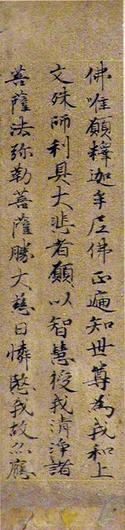 佛唯願釋迦牟尼佛正遍知世尊為我和上
文殊師利具大悲者願以智慧授我清淨諸
菩薩法弥勒菩薩勝大慈日憐愍我故亦應